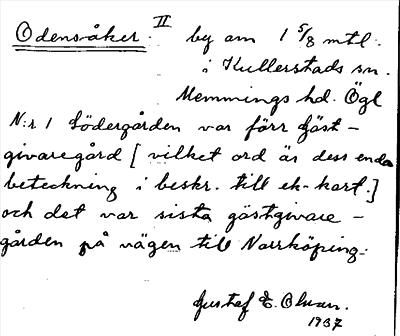 Odensåker. II by om 1 5/8 mtl.
i Kullerstads sn.
Memmings hd. Ögl
N:r 1 Södergården var förr gäst-
givaregård [vilket ord är dess enda
beteckning i beskr. till ek-kart.]
och det var sista gästgivare-
gården på vägen till Norrköping.
Gustaf E. Olsson.
1937